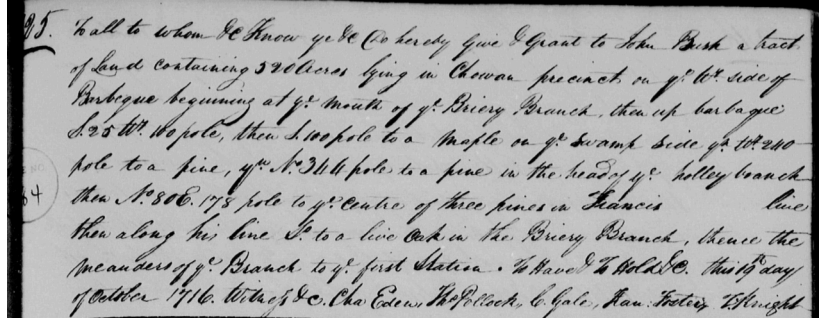 25. To all to whom &C Know ye &C Do hereby Give & Grant to John Bush a tract
of Land containing 520 Acres lying in Chowan precinct on ye. Wt. side of
Barbeque beginning at ye. mouth of ye. Briery Branch, then up barbaque
S. 25 Wt. 100 pole, then S. 100 pole to a maple on ye. Swamp side yn. Wt. 240
pole to a pine, yn. No. 344 pole to a pine in the head of ye. holley branch
then No. 80 E. 178 pole to ye. centre of three pines in Francis line
then along his line So. to a live Oak in the Briery Branch, thence the
meanders of ye. Branch to ye. first Station. To Have & To Hold &C. this 19th day
of October 1716. Witness &c. Cha Eden, Tho Pollock, C. Gale, Fran: Foster, T. Knight
84